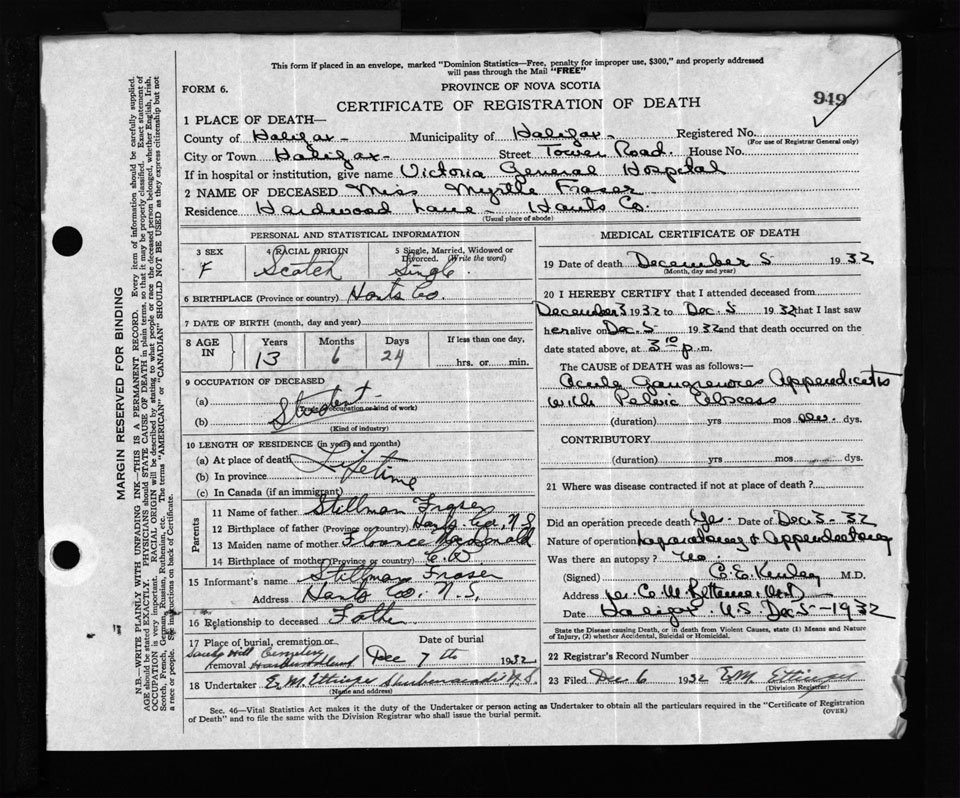 This form if placed in an envelope, marked "Dominion Statistics—Free, penalty for improper use, $300," and properly addressed
will pass through the Mail "FREE"
FORM 6.
PROVINCE OF NOVA SCOTIA
949
CERTIFICATE OF REGISTRATION OF DEATH
1 PLACE OF DEATH—
County of Halifax - Municipality of Halifax - Registered No.
(For use of Registrar General only)
City or Town Halifax - Street Tower Road. House No.
If in hospital or institution, give name Victoria General Hospital
2 NAME OF DECEASED Miss Myrtle Fraser
Residence Hardwood Lane - Hants Co.
(Usual place of abode)
PERSONAL AND STATISTICAL INFORMATION
3 SEX 4 RACIAL ORIGIN 5 Single, Married, Widowed or Divorced. (Write the word)
F Scotch Single.
6 BIRTHPLACE (Province or country) Hants Co.
7 DATE OF BIRTH (month, day and year)
8 AGE IN Years Months Days If less than one day,
13 6 24 hrs. or min.
9 OCCUPATION OF DECEASED
(a) Student
(Occupation or kind of work)
(b)
(Kind of industry)
10 LENGTH OF RESIDENCE (in years and months)
(a) At place of death Lifetime
(b) In province
(c) In Canada (if an immigrant)
Parents
11 Name of father Stillman Fraser
12 Birthplace of father (Province or country) Hants Co. N.S.
13 Maiden name of mother Florence MacDonald
14 Birthplace of mother (Province or country)
15 Informant's name Stillman Fraser
Address Hants Co. N.S.
16 Relationship to deceased Father
17 Place of burial, cremation or removal Date of burial
Cemetery Dec 7th 1932
18 Undertaker E. M. Ettinger Shubenacadie N.S.
(Name and address)
MEDICAL CERTIFICATE OF DEATH
19 Date of death December 5 1932
(Month, day and year)
20 I HEREBY CERTIFY that I attended deceased from
December 3 1932 to Dec. 5 1932 that I last saw
her alive on Dec. 5 1932 and that death occurred on the
date stated above, at 3 10 p. m.
The CAUSE of DEATH was as follows:—
Acute Gangrenous Appendicitis
with Pelvic Abscess
(duration) yrs mos dys.
CONTRIBUTORY
(duration) yrs mos dys.
21 Where was disease contracted if not at place of death?
Did an operation precede death Yes. Date of Dec 3 - 32
Nature of operation Laparotomy & Appendectomy
Was there an autopsy? no.
(Signed) C. E. Kinley M.D.
Address per C. M.
Date Halifax. N.S. Dec 5 - 1932
State the Disease causing Death, or in death from Violent Causes, state (1) Means and Nature
of Injury, (2) whether Accidental, Suicidal or Homicidal.
22 Registrar's Record Number
23 Filed Dec 6 1932 E.M. Ettinger
(Division Registrar)
Sec. 46—Vital Statistics Act makes it the duty of the Undertaker or person acting as Undertaker to obtain all the particulars required in the "Certificate of Registration
of Death" and to file the same with the Division Registrar who shall issue the burial permit.
(OVER)
MARGIN RESERVED FOR BINDING
N.B.—WRITE PLAINLY WITH UNFADING INK—THIS IS A PERMANENT RECORD. Every item of information should be carefully supplied.
AGE should be stated EXACTLY. PHYSICIANS should STATE CAUSE OF DEATH in plain terms, so that it may be properly classified. Exact statement of
OCCUPATION is very important. RACIAL ORIGIN will be described by stating to what people or race the deceased person belonged, whether English, Irish,
Scotch, French, German, Russian, Ruthenian, etc. The terms "AMERICAN" or "CANADIAN" SHOULD NOT BE USED as they express citizenship but not
a race or people. See instructions on back of Certificate.